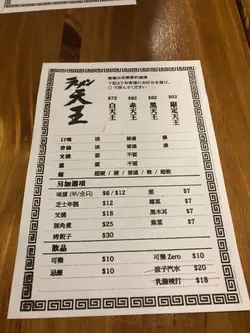 天王
$72 $82 $82 $82
白天王 赤天王 黑天王 限定天王
口味 淡 普通 濃
香油 淡 普通 濃
叉燒 要 不要
蔥 要 不要
麵 超硬 / 硬 / 普通 / 軟 / 超軟
另加選項
味蛋 (半/全只) $6 / $12 蔥 $7
芝士年糕 $12 椰菜 $7
叉燒 $18 黑木耳 $7
豚角煮 $25 紫菜 $7
烤餃子 $30
飲品
可樂 $10 可樂 Zero $10
忌廉 $10 波子汽水 $20
乳酸梳打 $18